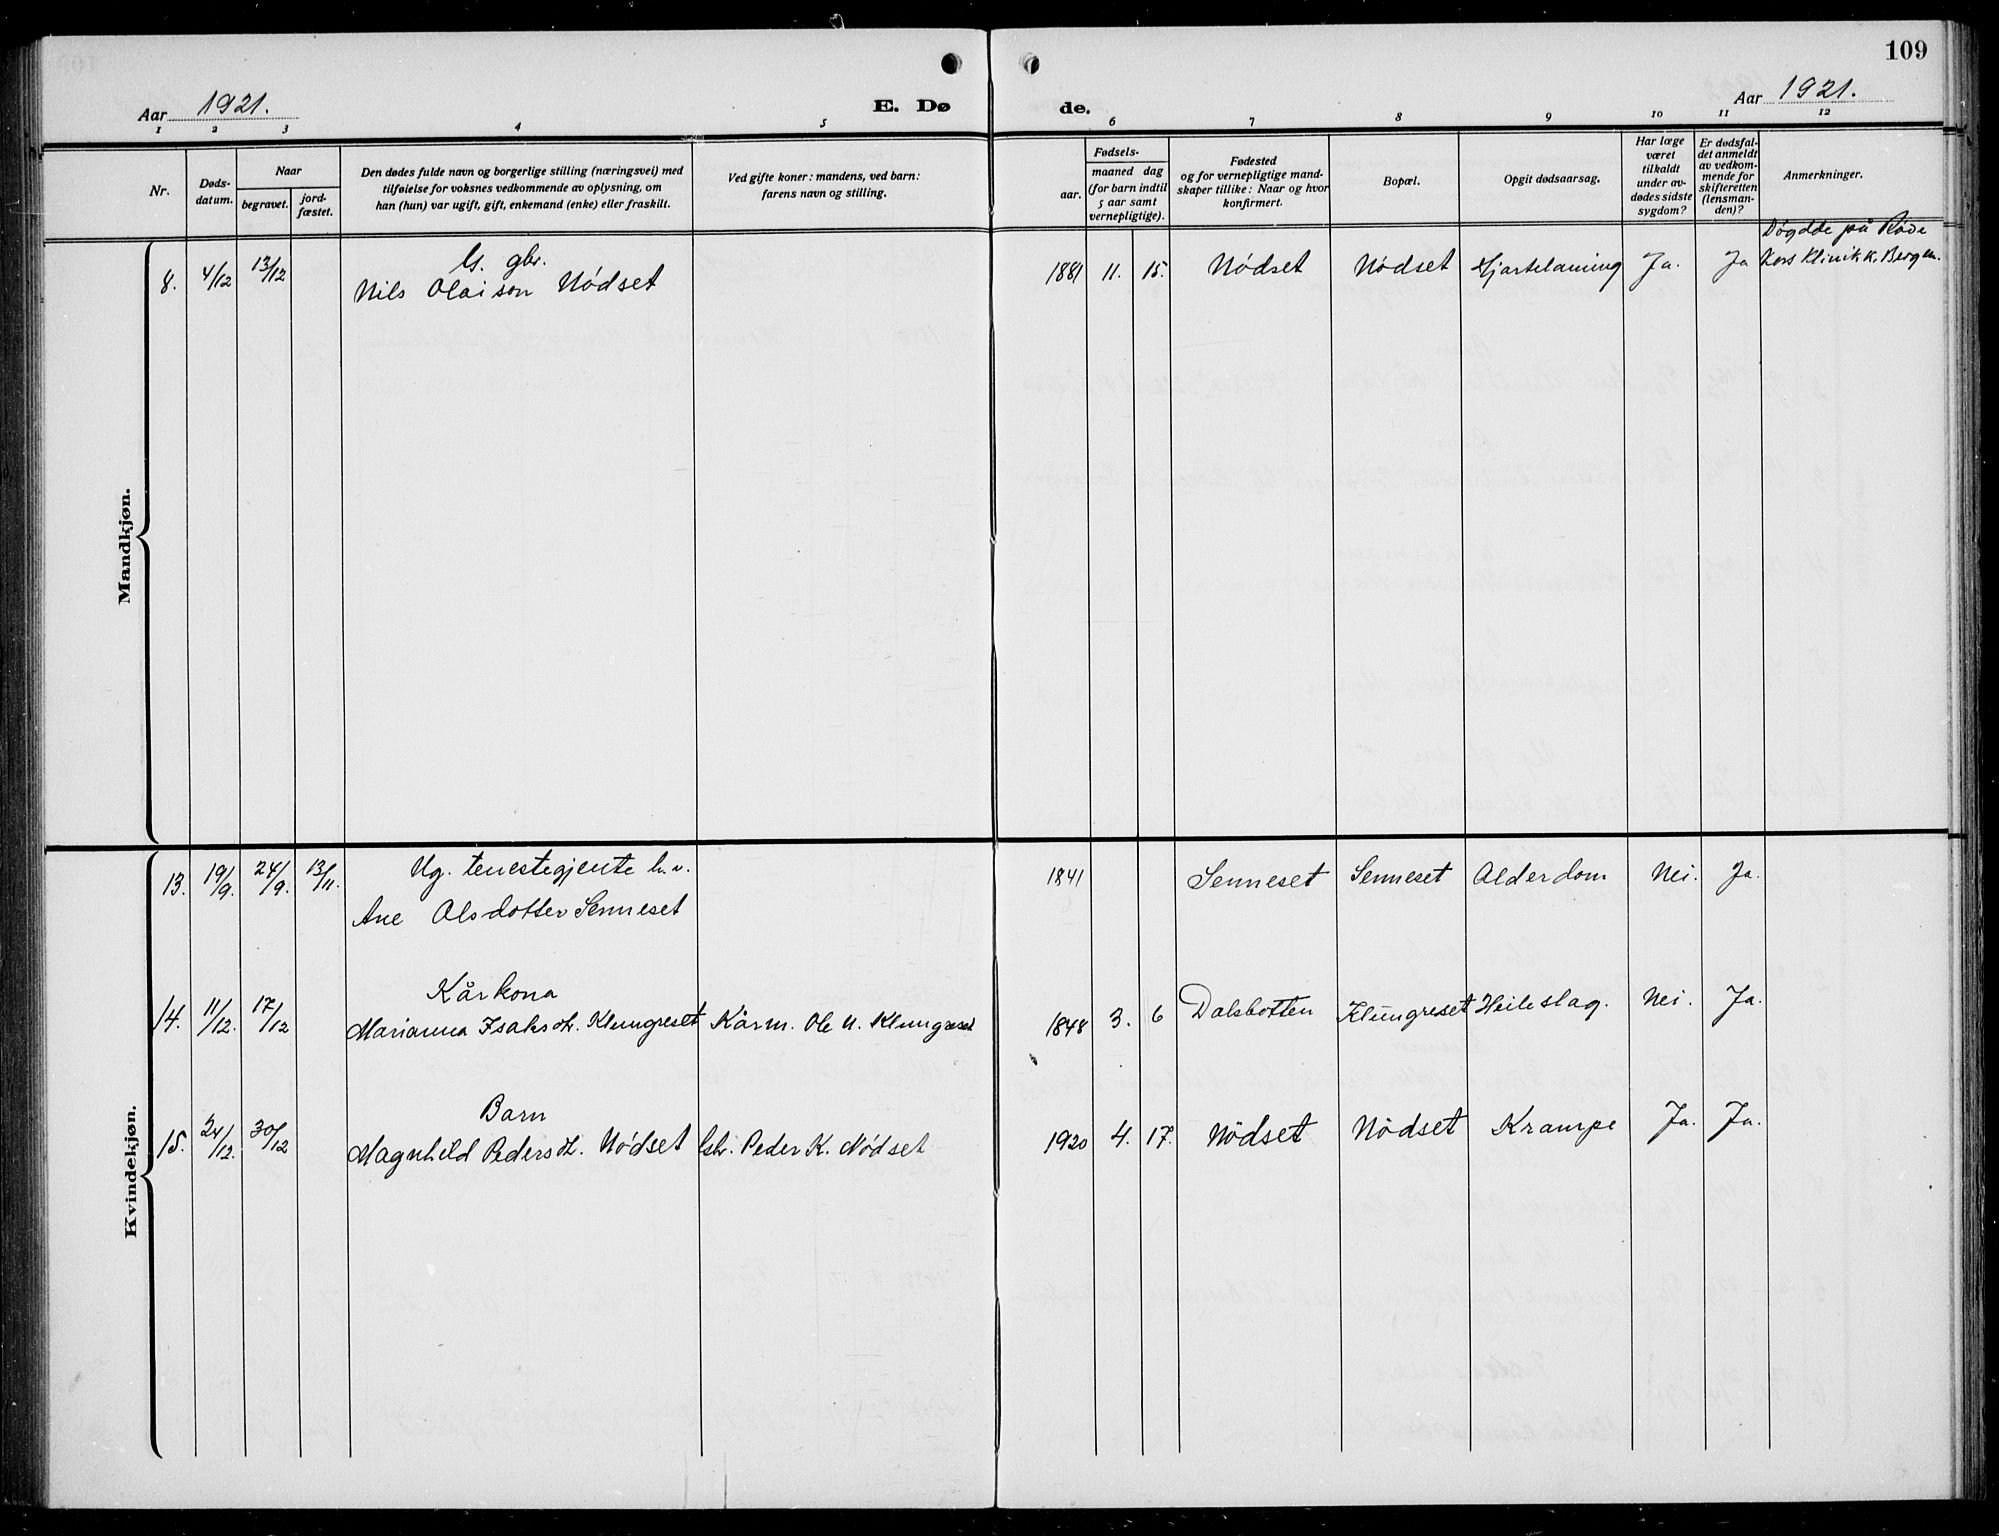 109
Aar 1921.
E. Dø
de.
Aar 1921.
1 2 3 4 5 6 7 8 9 10 11 12
Nr.
Døds-
datum.
Naar
begravet.
jord-
fæstet.
Den dødes fulde navn og borgerlige stilling (næringsvei) med
tilføielse for voksnes vedkommende av oplysning, om
han (hun) var ugift, gift, enkemand (enke) eller fraskilt.
Ved gifte koner: mandens, ved barn:
farens navn og stilling.
Fødsels-
aar.
maaned dag
(for barn indtil
5 aar samt
vernepligtige).
Fødested
og for vernepligtige mand-
skaper tillike: Naar og hvor
konfirmert.
Bopæl.
Opgit dødsaarsag.
Har læge
været
tilkaldt
under av-
dødes sidste
sygdom?
Er dødsfal-
det anmeldt
av vedkom-
mende for
skifteretten
(lensman-
den)?
Anmerkninger.
Mandkjøn.
G. gbr.
8. 4/12 13/12 Nils Olaison Nödset 1881 11. 15. Nödset Nödset Hjartelaming Ja. Ja
Døgdde på Røde
Kors Klinikk, Bergen.
Kvindekjøn.
Ug. tenestegjente
13. 19/9. 24/9. 13/11. Ane Olsdotter Senneset 1841 Senneset Senneset Alderdom Nei. Ja.
Kårkona
14. 11/12. 17/12 Marianna Isaksdt. Klungreset Kårm. Ole N. Klungreset 1848 3. 6 Dalsbotten Klungreset Heileslag. Nei. Ja.
Barn
15. 24/12. 30/12 Magnhild Pedersdt. Nödset Gbr. Peder K. Nödset 1920 4. 17. Nödset Nödset Krampe Ja. Ja.